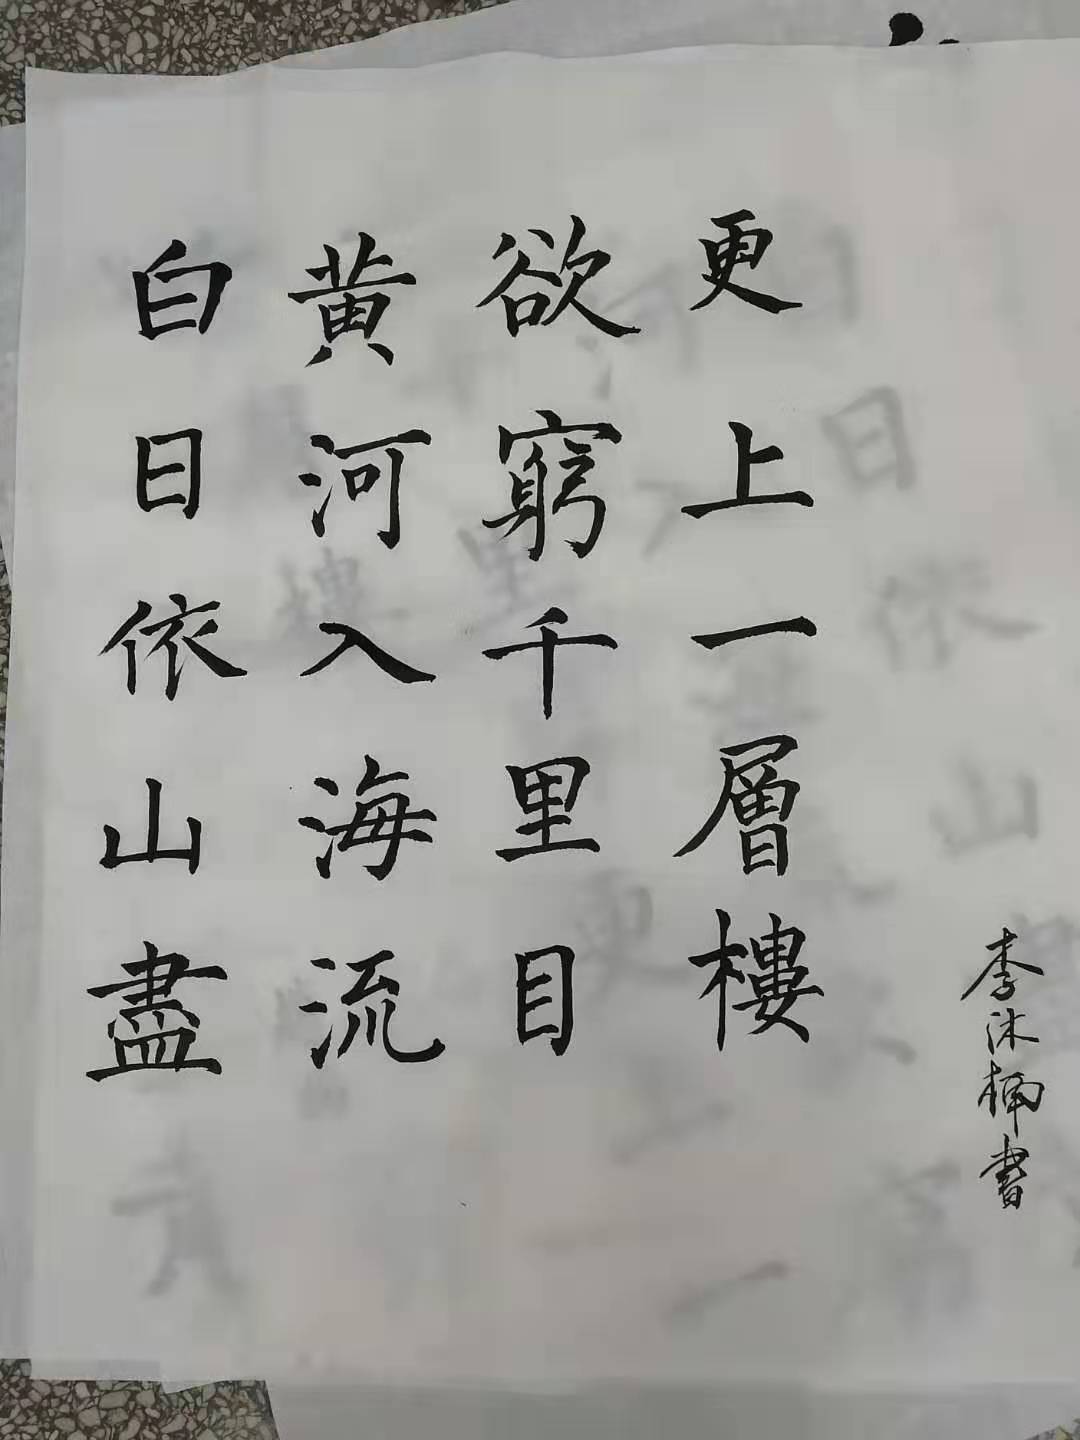 白日依山盡
黄河入海流
欲窮千里目
更上一層樓
李沐楠書